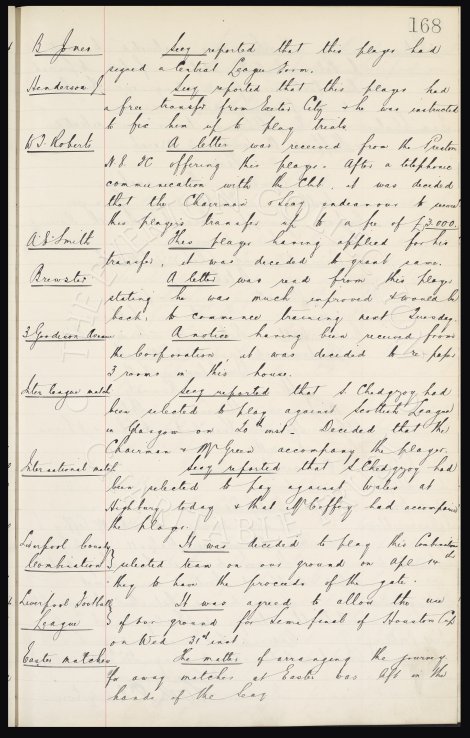 168
B Jones Secy reported that this player had
signed a Central League Form.
Henderson J Secy reported that this player had
a free transfer from Exeter City & he was instructed
to fix him up to play trials
W J Roberts A letter was received from the Preston
N E FC offering this player. After a telephonic
communication with the Club, it was decided
that the Chairman & Secy endeavour to secure
this players transfer up to a fee of £3.000.
A E Smith This player having applied for his
transfer, it was decided to grant same.
Brewster A letter was read from this player
stating he was much improved & would be
back to commence training next Tuesday.
3 Goodison Avenue A notice having been received from
the Corporation, it was decided to re paper
3 rooms in this house.
Inter league match Secy reported that S Chedgzoy had
been selected to play against Scottish League
in Glasgow on 20th inst. Decided that the
Chairman & Mr Green accompany the player.
International match Secy reported that S Chedgzoy had
been selected to pay against Wales at
Highbury today & that Mr Coffey had accompanied
the player.
Liverpool County It was decided to play this Combination
Combination } selected team on our ground on Apl 14th
they to have the proceeds of the gate.
Liverpool Football It was agreed to allow the use
League } of our ground for Semi final of Houston Cup
on Wed 31st inst
Easter matches The matter of arranging the journey
for away matches at Easter was left in the
hands of the Secy